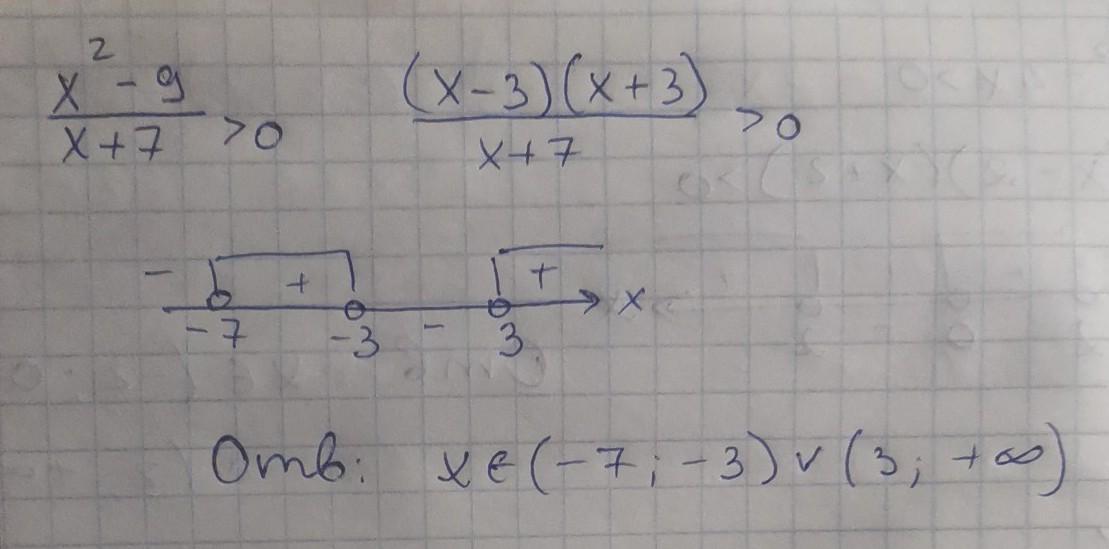 x² - 9 / x + 7 > 0    (x - 3)(x + 3) / x + 7 > 0
- + - + x
-7 -3 3
Отв: x ∈ (-7; -3) ∨ (3; +∞)